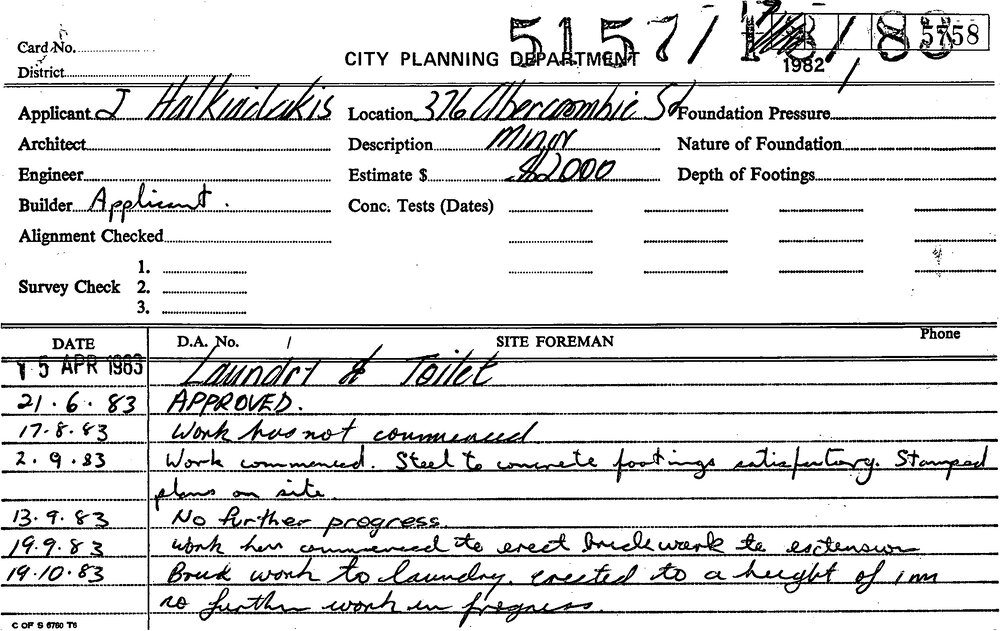 Card No.
5157/ /83 5758
CITY PLANNING DEPARTMENT
1982
District
Applicant J Halkiadakis Location 376 Abercrombie St Foundation Pressure
Architect Description Minor Nature of Foundation
Engineer Estimate $ $2000 Depth of Footings
Builder Applicant. Conc. Tests (Dates)
Alignment Checked
1.
Survey Check 2.
3.
DATE D.A. No. / SITE FOREMAN Phone
15 APR 1983 Laundry & Toilet
21.6.83 APPROVED.
17.8.83 Work has not commenced.
2.9.83 Work commenced. Steel to concrete footings satisfactory. Stamped
plans on site.
13.9.83 No further progress.
19.9.83 Work has commenced to erect brickwork to extension
19.10.83 Brick work to laundry. erected to a height of 1m
no further work in progress.
C OF S 6760 T6